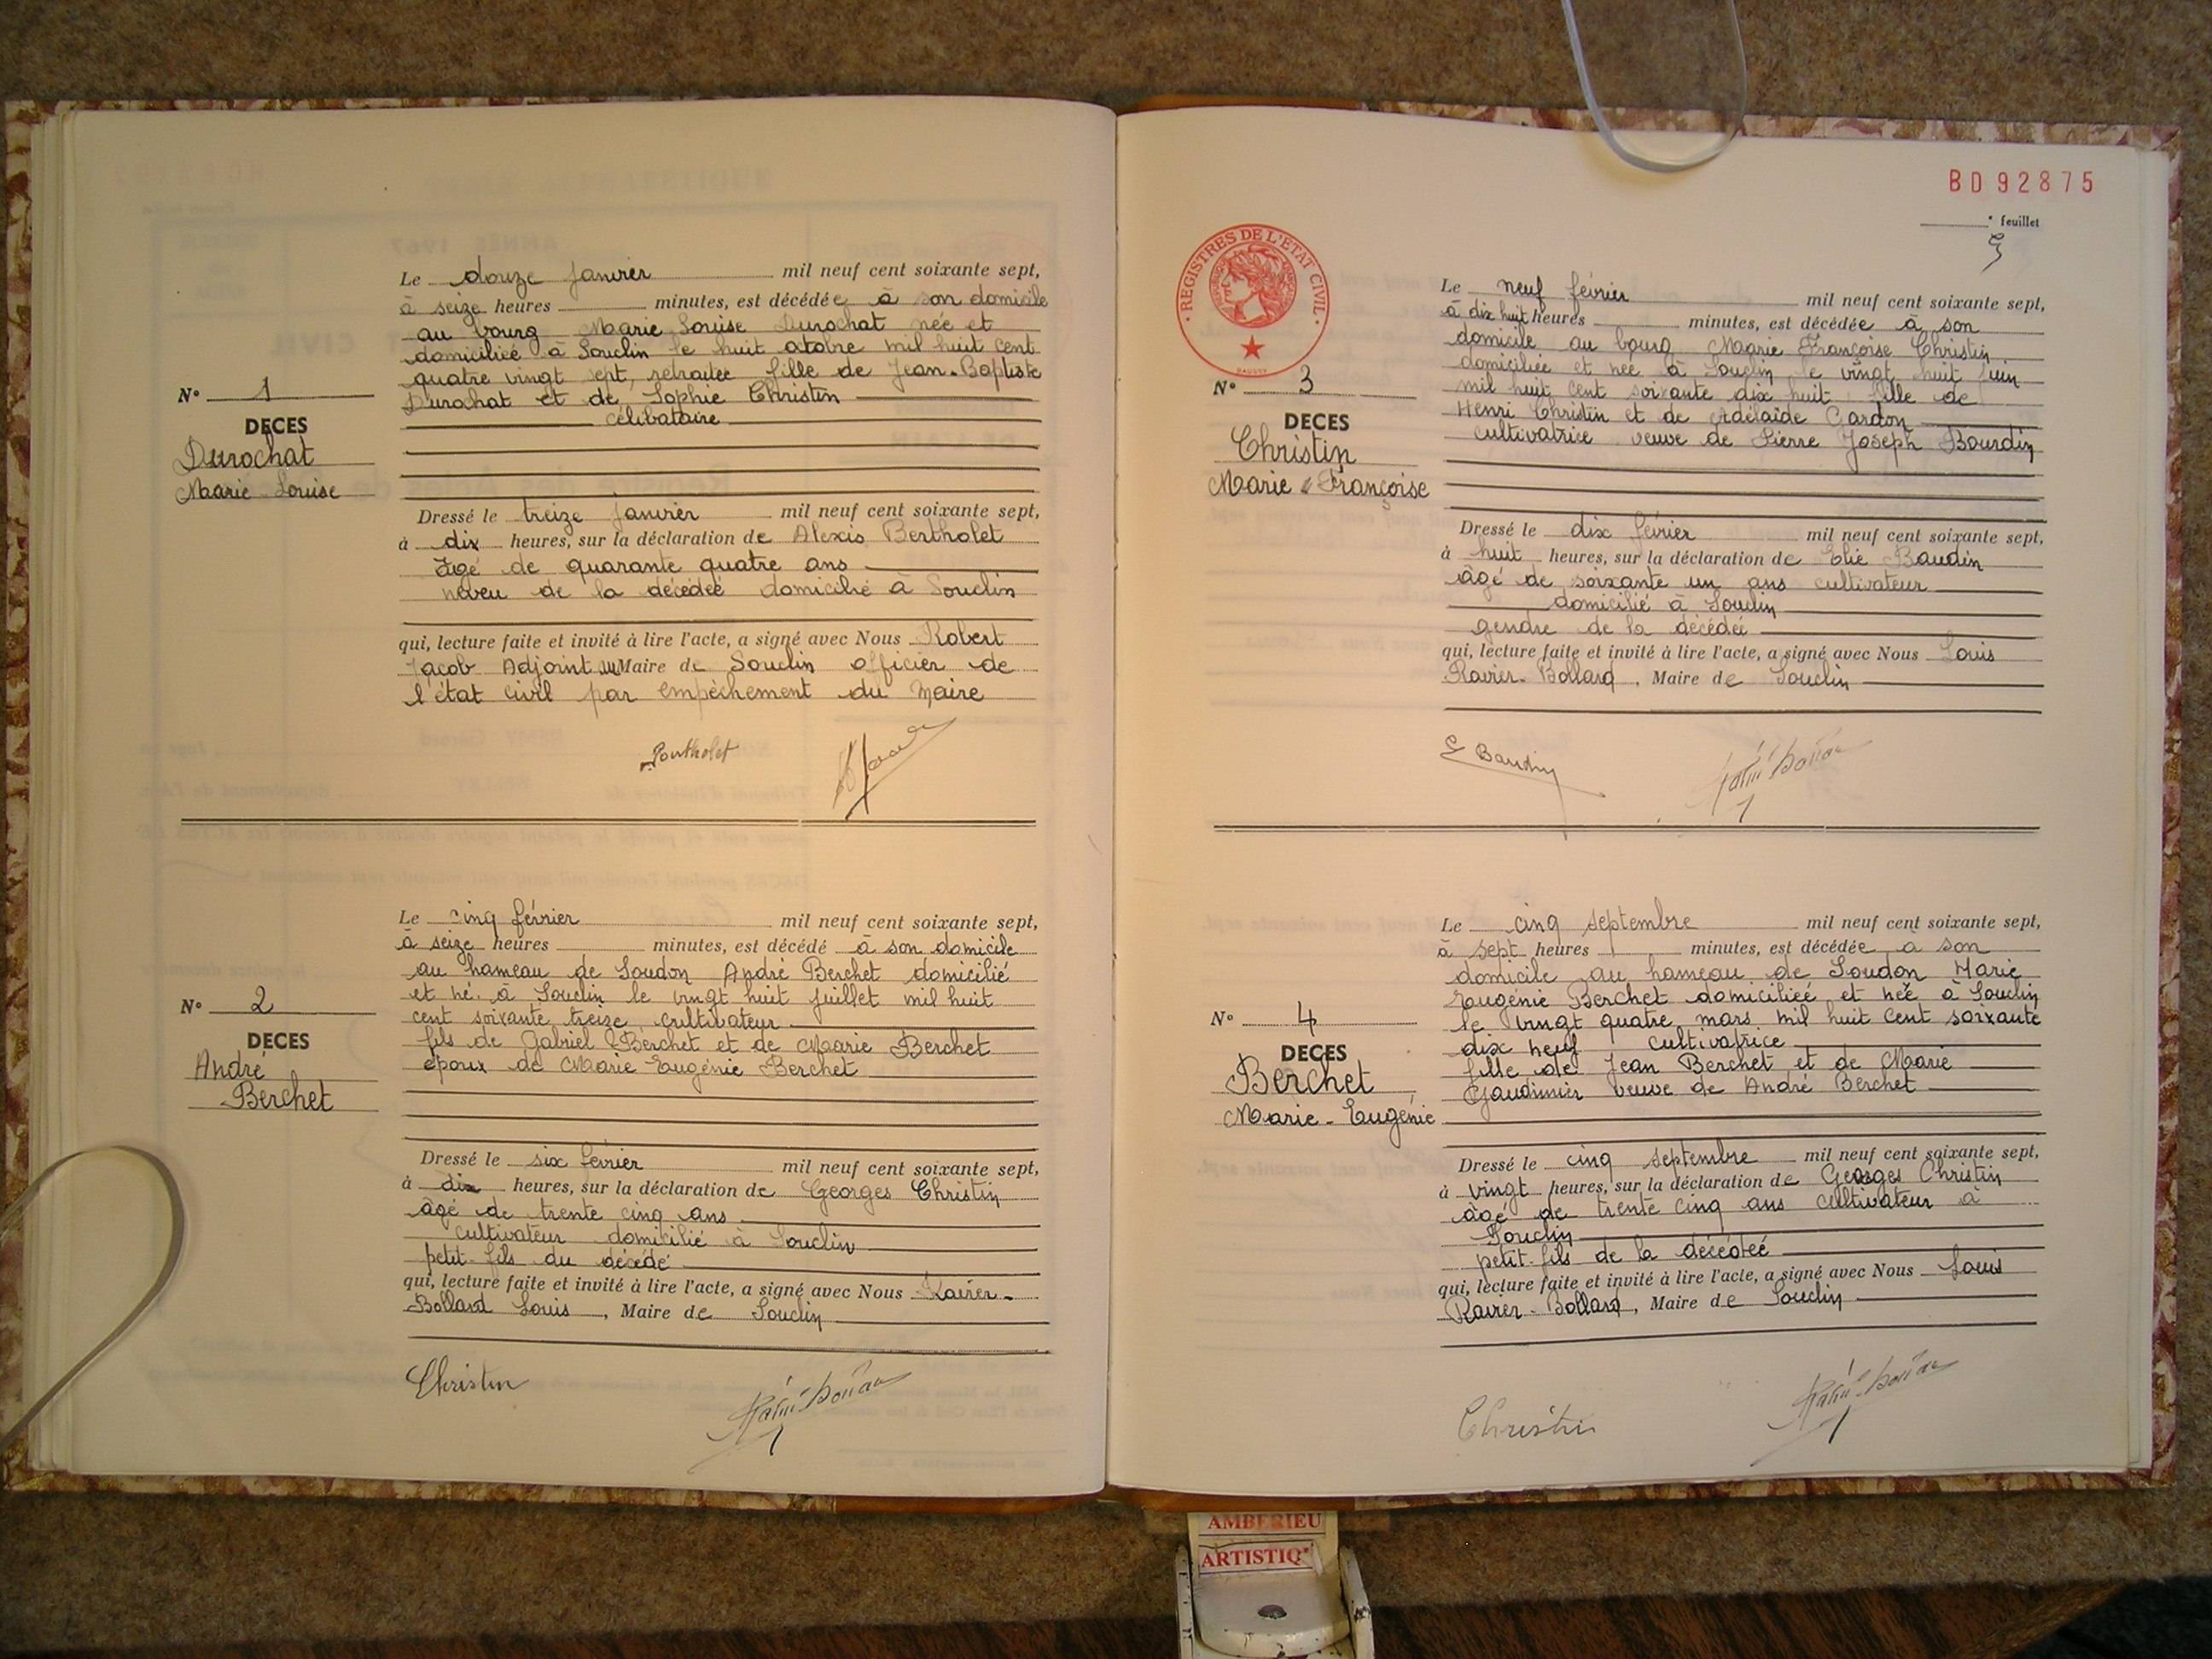 Le douze janvier mil neuf cent soixante sept,
à seize heures minutes, est décédée à son domicile
au bourg Marie Louise Durochat née et
domiciliée à Souclin le huit octobre mil huit cent
quatre vingt sept, retraitée fille de Jean-Baptiste
Durochat et de Sophie Christin
célibataire
N° 1
DECES
Durochat
Marie-Louise
Dressé le treize janvier mil neuf cent soixante sept,
à dix heures, sur la déclaration de Alexis Bertholet
âgé de quarante quatre ans
neveu de la décédée domicilié à Souclin
qui, lecture faite et invité à lire l'acte, a signé avec Nous Robert
Jacob Adjoint au Maire de Souclin officier de
l'état civil par empêchement du Maire
Bertholet
Le cinq février mil neuf cent soixante sept,
à seize heures minutes, est décédé à son domicile
au hameau de Soudon André Berchet domicilié
et né à Souclin le vingt huit juillet mil huit
cent soixante treize cultivateur
fils de Gabriel Berchet et de Marie Berchet
époux de Marie Eugénie Berchet
N° 2
DECES
André
Berchet
Dressé le six février mil neuf cent soixante sept,
à dix heures, sur la déclaration de Georges Christin
âgé de trente cinq ans
cultivateur domicilié à Souclin
petit-fils du décédé
qui, lecture faite et invité à lire l'acte, a signé avec Nous Ravier-
Bollard Louis, Maire de Souclin
Christin
BD 92875
feuillet
3
REGISTRES DE L'ETAT CIVIL
Le neuf février mil neuf cent soixante sept,
à dix huit heures minutes, est décédée à son
domicile au bourg Marie Françoise Christin
domiciliée et née à Souclin le vingt huit juin
mil huit cent soixante dix huit fille de
Henri Christin et de Adélaïde Cardon
cultivatrice veuve de Pierre Joseph Bourdin
N° 3
DECES
Christin
Marie Françoise
Dressé le dix février mil neuf cent soixante sept,
à huit heures, sur la déclaration de Elie Baudin
âgé de soixante un ans cultivateur
domicilié à Souclin
gendre de la décédée
qui, lecture faite et invité à lire l'acte, a signé avec Nous Louis
Ravier-Bollard, Maire de Souclin
E Baudin
Le cinq septembre mil neuf cent soixante sept,
à sept heures minutes, est décédée a son
domicile au hameau de Soudon Marie
Eugénie Berchet domiciliée et née à Souclin
le vingt quatre mars mil huit cent soixante
dix neuf cultivatrice
fille de Jean Berchet et de Marie
Gaudinier veuve de André Berchet
N° 4
DECES
Berchet
Marie-Eugénie
Dressé le cinq septembre mil neuf cent soixante sept,
à vingt heures, sur la déclaration de Georges Christin
âgé de trente cinq ans cultivateur à
Souclin
petit-fils de la décédée
qui, lecture faite et invité à lire l'acte, a signé avec Nous Louis
Ravier-Bollard, Maire de Souclin
Christin
AMBERIEU
ARTISTIQ